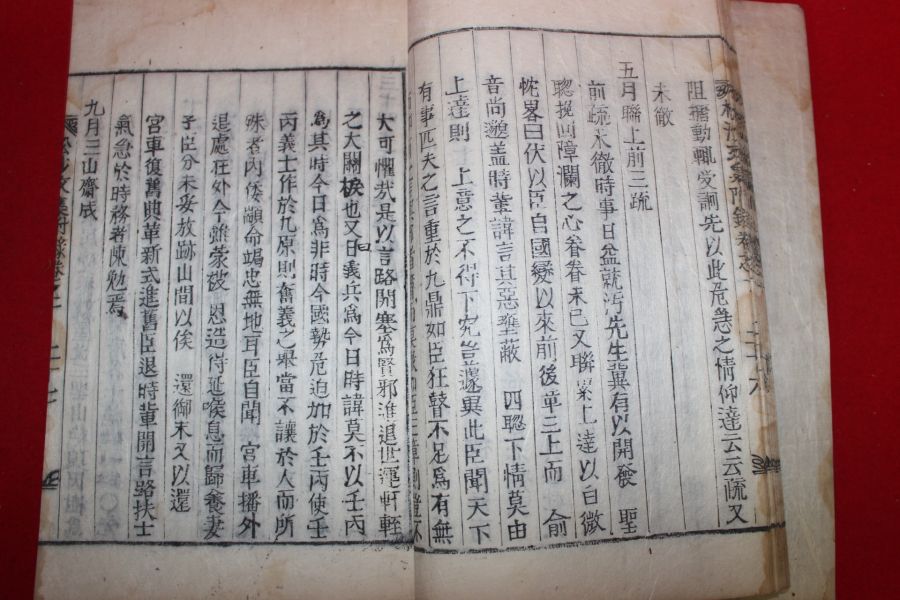 阻搪動輒受詗先以此危急之情仰達云云疏又
未徹
五月聯上前三疏
前疏未徹時事日益就沔先生冀有以開發 聖
聰挽回障瀾之心眷眷未已又聯累上達以白微
忱畧曰伏以臣自國變以來前後章三上而 俞
音尚邈盖時輩諱言其惡壅蔽 四聰下情莫由
上達則 上意之不得下究豈遽異此臣聞天下
有事匹夫之言重於九鼎如臣狂瞽不足爲有無
大可懼哉是以言路開塞爲賢邪進退世運軒輊
之大關棙也又曰義兵爲今日時諱莫不以壬丙
爲其時今日爲非時今國勢危迫加於壬丙使壬
丙義士作於九原則奮義之擧當不讓於人而所
殊者內倭顓命竭忠無地耳臣自聞 宮車播外
退處狂外今雖蒙被 恩造待延喉息而歸養妻
子臣分未妥放跡山間以俟 還御末又以還
宮車復舊典革新式進舊臣退時輩開言路扶士
氣急於時務者陳勉焉
九月三山齋成